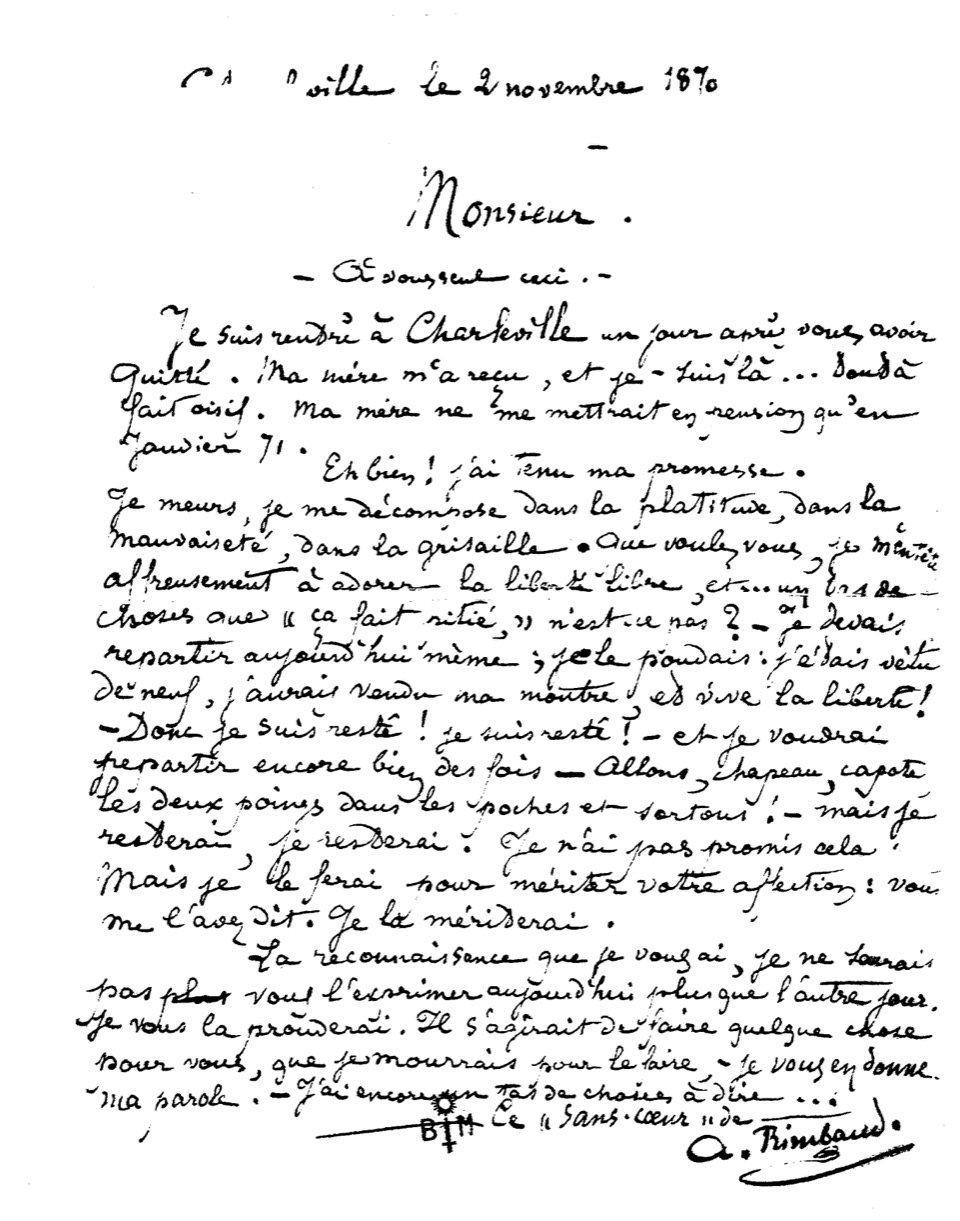 ville le 2 novembre 1870
Monsieur.
- A vous seul ceci. -
Je suis rentré à Charleville un jour après vous avoir
quitté. Ma mère m'a reçu, et je - suis là... tout à
fait oisif. Ma mère ne me mettrait en pension qu'en
Janvier 71.
Eh bien! j'ai tenu ma promesse.
Je meurs, je me décompose dans la platitude, dans la
mauvaiseté, dans la grisaille. Que voulez-vous, je m'entête
affreusement à adorer la liberté libre, et... un tas de
choses que « ça fait pitié, » n'est-ce pas? - je devais
repartir aujourd'hui même; je le pouvais: j'étais vêtu
de neuf, j'aurais vendu ma montre, et vive la liberté!
- Donc je suis resté! je suis resté! - et je voudrai
repartir encore bien des fois - Allons, chapeau, capote
les deux poings dans les poches et sortons! - mais je
resterai, je resterai. Je n'ai pas promis cela.
Mais je le ferai pour mériter votre affection: vous
me l'avez dit. Je la mériterai.
La reconnaissance que je vous ai, je ne saurais
pas vous l'exprimer aujourd'hui plus que l'autre jour.
Je vous la prouverai. Il s'agirait de faire quelque chose
pour vous, que je mourrais pour le faire, - je vous en donne
ma parole. - J'ai encore un tas de choses à dire...
Ce « sans-cœur » de
A. Rimbaud.
B M